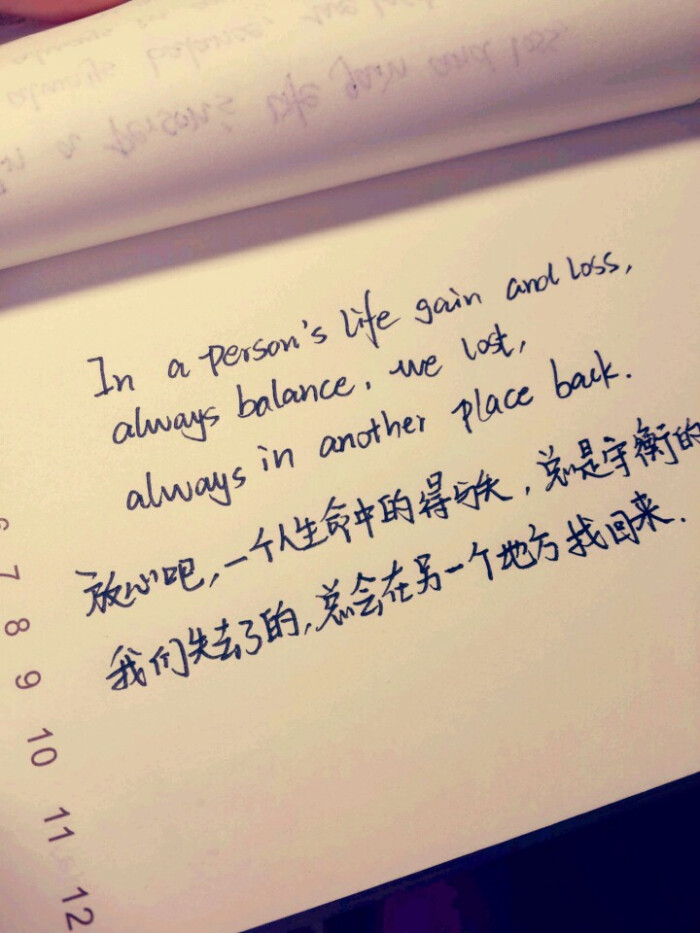 In a person's life gain and loss,
always balance. we lost,
always in another place back.
放心吧,一个人生命中的得与失,总是守衡的
我们失去了的,总会在另一个地方找回来.
6
7
8
9
10
11
12